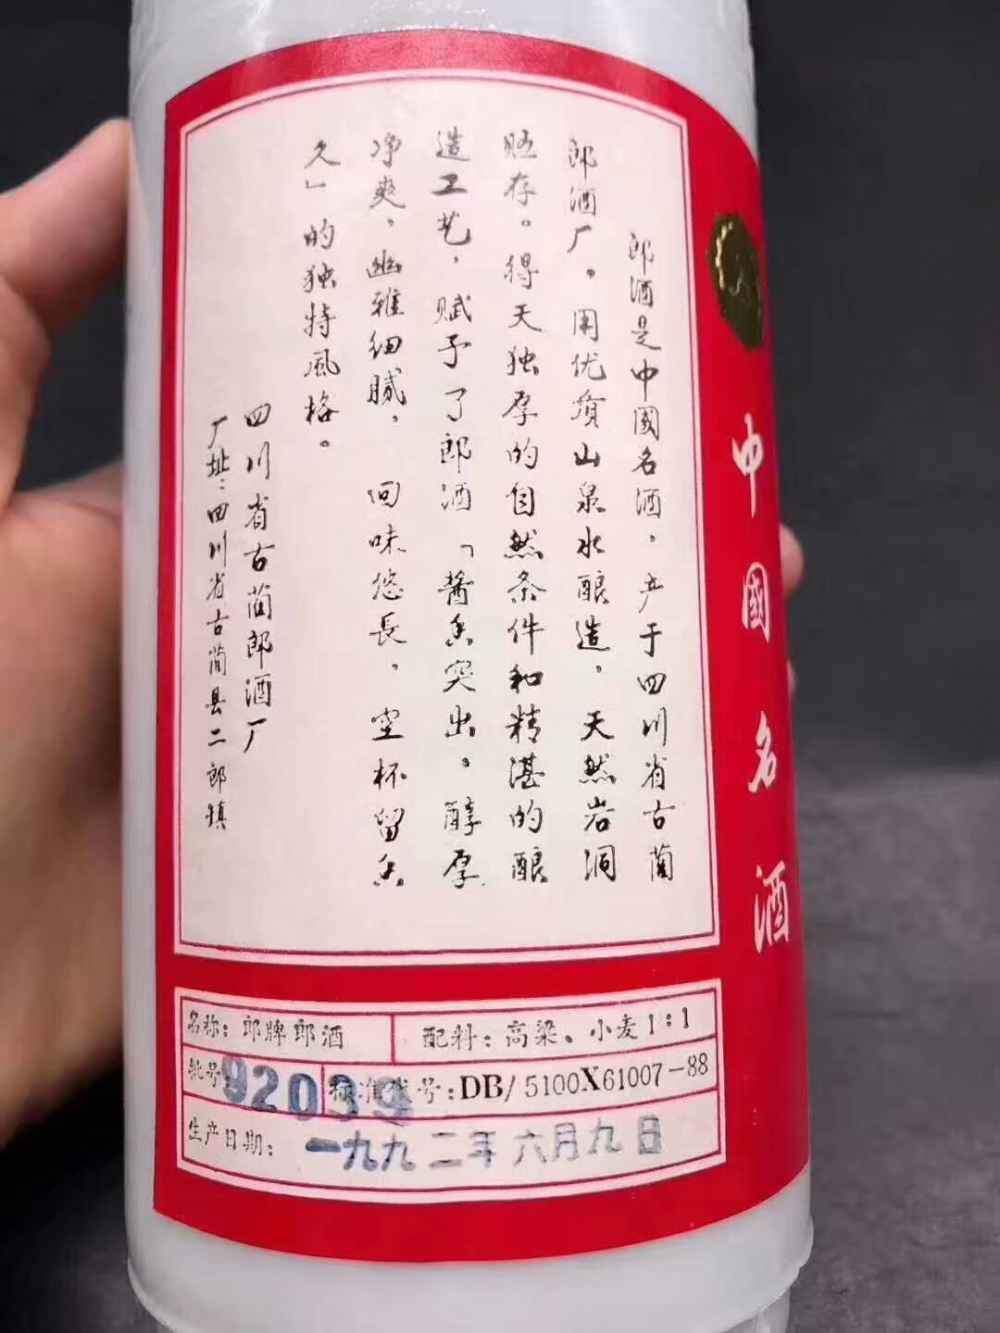 郎酒是中國名酒，产于四川省古蔺
郎酒厂。用优质山泉水酿造，天然岩洞
贮存。得天独厚的自然条件和精湛的酿
造工艺，赋予了郎酒「酱香突出。醇厚
净爽，幽雅细腻，回味悠長，空杯留香
久」的独特風格。
四川省古蔺郎酒厂
厂址：四川省古蔺县二郎镇
中國名酒
名称：郎牌郎酒
配料：高粱、小麦1：1
批号
标准代号：DB/5100X61007-88
生产日期：一九九二年六月九日